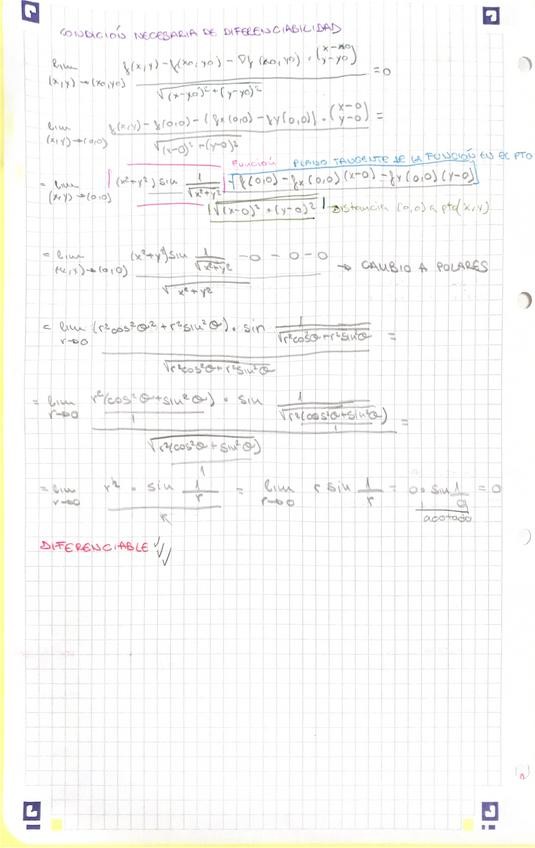 CONDICIÓN NECESARIA DE DIFERENCIABILIDAD
lim (x,y)→(x0,y0) f(x,y) - f(x0,y0) - ∇f(x0,y0) · (x-x0 y-y0) / √(x-x0)²+(y-y0)² = 0
lim (x,y)→(0,0) f(x,y) - f(0,0) - (fx(0,0) - fy(0,0)) · (x-0 y-0) / √(x-0)²-(y-0)² =
FUNCIÓN PLANO TANGENTE DE LA FUNCIÓN EN EL PTO
= lim (x,y)→(0,0) (x²+y²) sin 1/√x²+y² - f(0,0) - fx(0,0)(x-0) - fy(0,0)(y-0) / √(x-0)²+(y-0)² → Distancia (0,0) a pto(x,y)
= lim (x,y)→(0,0) (x²+y²) sin 1/√x²+y² - 0 - 0 - 0 / √x²+y² → CAMBIO A POLARES
= lim r→0 (r²cos²θ² + r²sin²θ) · sin 1/√r²cos²θ+r²sin²θ / √r²cos²θ+r²sin²θ =
= lim r→0 r²(cos²θ+sin²θ) 1 · sin 1/√r²(cos²θ+sin²θ) 1 / √r²(cos²θ+sin²θ) 1 =
= lim r→0 r² · sin 1/r / r = lim r→0 r sin 1/r = 0 · sin 1/0 = 0
acotado
DIFERENCIABLE